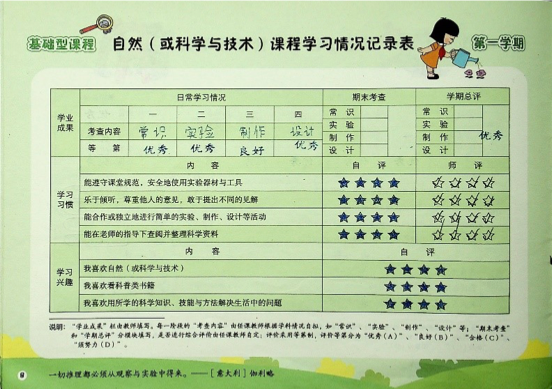 基础型课程
自然（或科学与技术）课程学习情况记录表
第一学期
学业成果
日常学习情况 期末考查 学期总评
一 二 三 四
考查内容 常识 实验 制作 设计
等第 优秀 优秀 良好 优秀
常识 常识
实验 实验
制作 制作 优秀
设计 设计
学习习惯
内容 自评 师评
能遵守课堂规范，安全地使用实验器材与工具
乐于倾听，尊重他人的意见，敢于提出不同的见解
能合作或独立地进行简单的实验、制作、设计等活动
能在老师的指导下查阅并整理科学资料
学习兴趣
内容 自评
我喜欢自然（或科学与技术）
我喜欢看科普类书籍
我喜欢用所学的科学知识、技能与方法解决生活中的问题
说明：“学业成果”栏由教师填写，每一阶段的“考查内容”由任课教师根据学科情况自拟，如“常识”、“实验”、“制作”、“设计”等；“期末考查”
和“学期总评”分模块填写，是否进行综合评价由任课教师自定；评价采用等第制，评价等第分为“优秀（A）”、“良好（B）”、“合格（C）”、
“须努力（D）”。
一切推理都必须从观察与实验中得来。——［意大利］伽利略